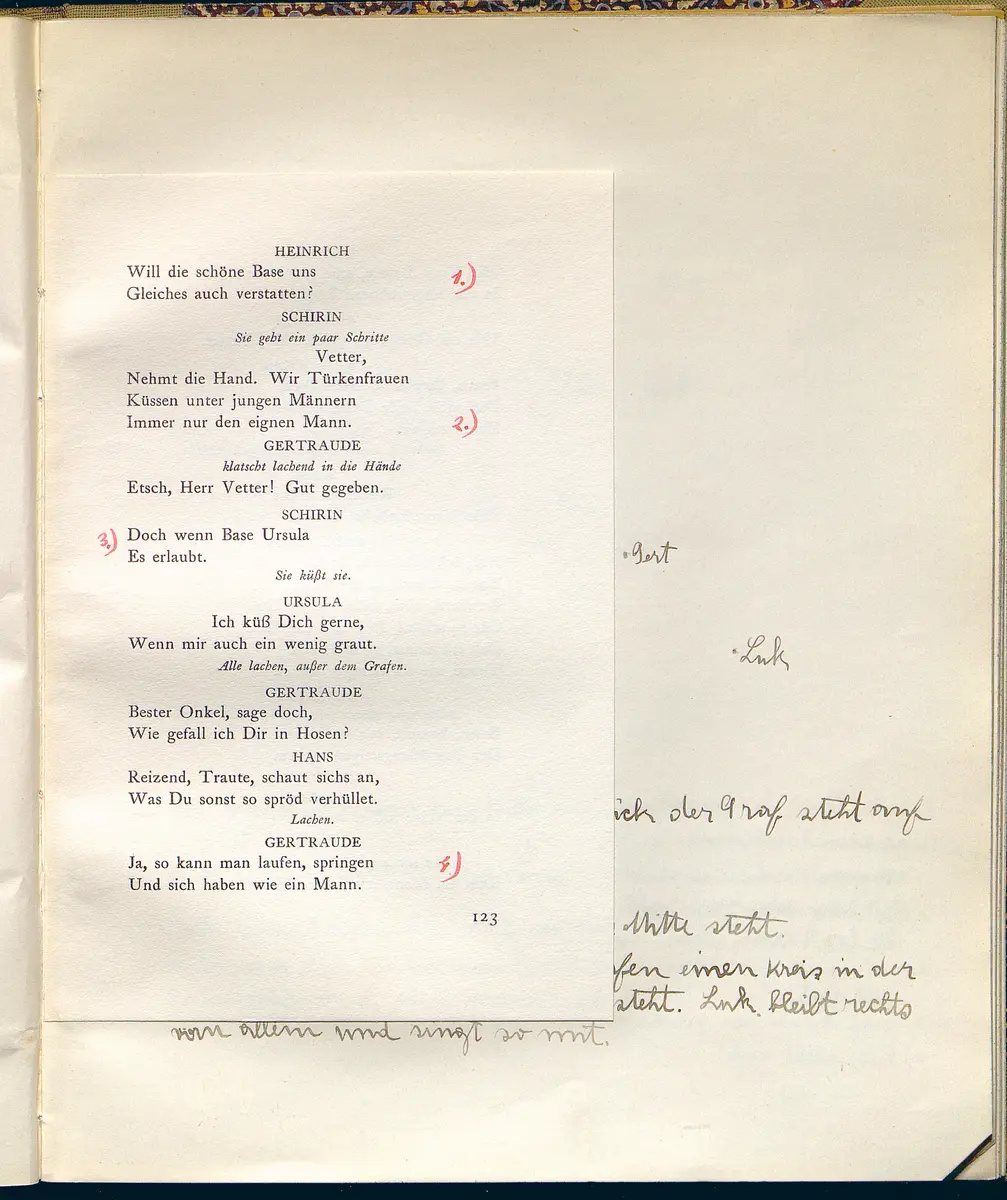 HEINRICH
Will die schöne Base uns
Gleiches auch verstatten?
1.)
SCHIRIN
Sie geht ein paar Schritte
Vetter,
Nehmt die Hand. Wir Türkenfrauen
Küssen unter jungen Männern
Immer nur den eignen Mann.
2.)
GERTRAUDE
klatscht lachend in die Hände
Etsch, Herr Vetter! Gut gegeben.
SCHIRIN
3.) Doch wenn Base Ursula
Es erlaubt.
Sie küßt sie.
URSULA
Ich küß Dich gerne,
Wenn mir auch ein wenig graut.
Alle lachen, außer dem Grafen.
GERTRAUDE
Bester Onkel, sage doch,
Wie gefall ich Dir in Hosen?
HANS
Reizend, Traute, schaut sichs an,
Was Du sonst so spröd verhüllet.
Lachen.
GERTRAUDE
Ja, so kann man laufen, springen
4.)
Und sich haben wie ein Mann.
123
Gert
Luk
ick der Graf steht auf
Mitte steht.
fen einen Kreis in der
steht. Luk. bleibt rechts
von allem und singt so mit.